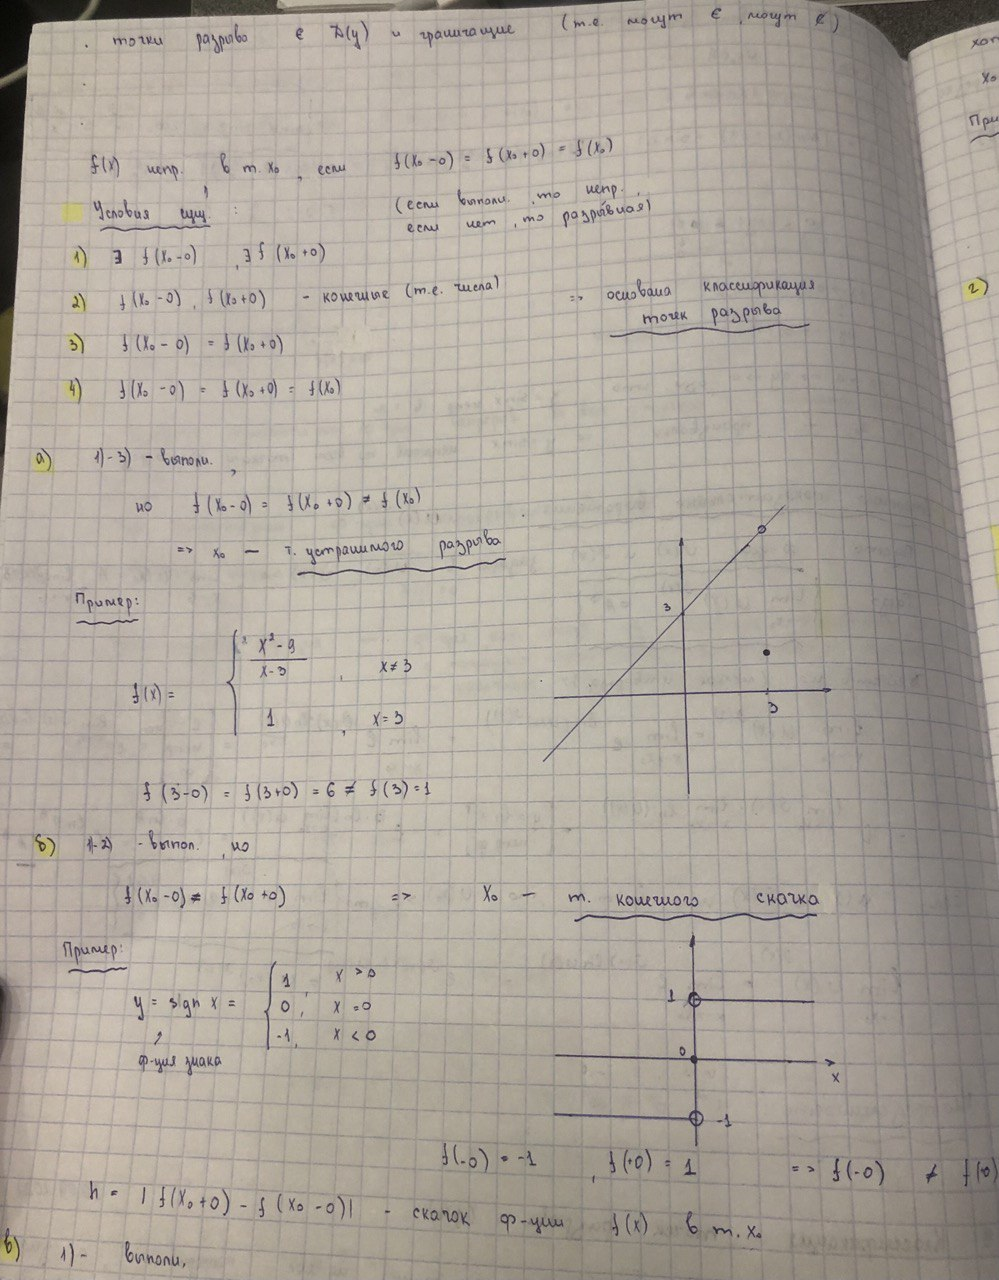 . точки разрыва ∈ D(y) и граничащие (т.е. могут ∈, могут ∉)
f(x) непр. в т. x₀, если f(x₀-0) = f(x₀+0) = f(x₀)
Условия сущ. :
(если выполн., то непр.,
если нет, то разрывная)
1) ∃ f(x₀-0), ∃ f(x₀+0)
2) f(x₀-0), f(x₀+0) - конечные (т.е. числа)
=> основана классификация
точек разрыва
3) f(x₀-0) = f(x₀+0)
4) f(x₀-0) = f(x₀+0) = f(x₀)
а) 1)-3) - выполн.,
но f(x₀-0) = f(x₀+0) ≠ f(x₀)
=> x₀ — т. устранимого разрыва
Пример:
f(x) = { (x²-9)/(x-3), x≠3
1, x=3
3
3
f(3-0) = f(3+0) = 6 ≠ f(3)=1
б) 1)-2) - выпол., но
f(x₀-0) ≠ f(x₀+0) => x₀ — т. конечного скачка
Пример:
y = sign x = { 1, x > 0
0, x = 0
-1, x < 0
ф-ция знака
1
0
x
-1
f(-0) = -1, f(+0) = 1 => f(-0) ≠ f(+0)
h = |f(x₀+0) - f(x₀-0)| - скачок ф-ции f(x) в т. x₀
в) 1) - выполн,
x₀
При
2)